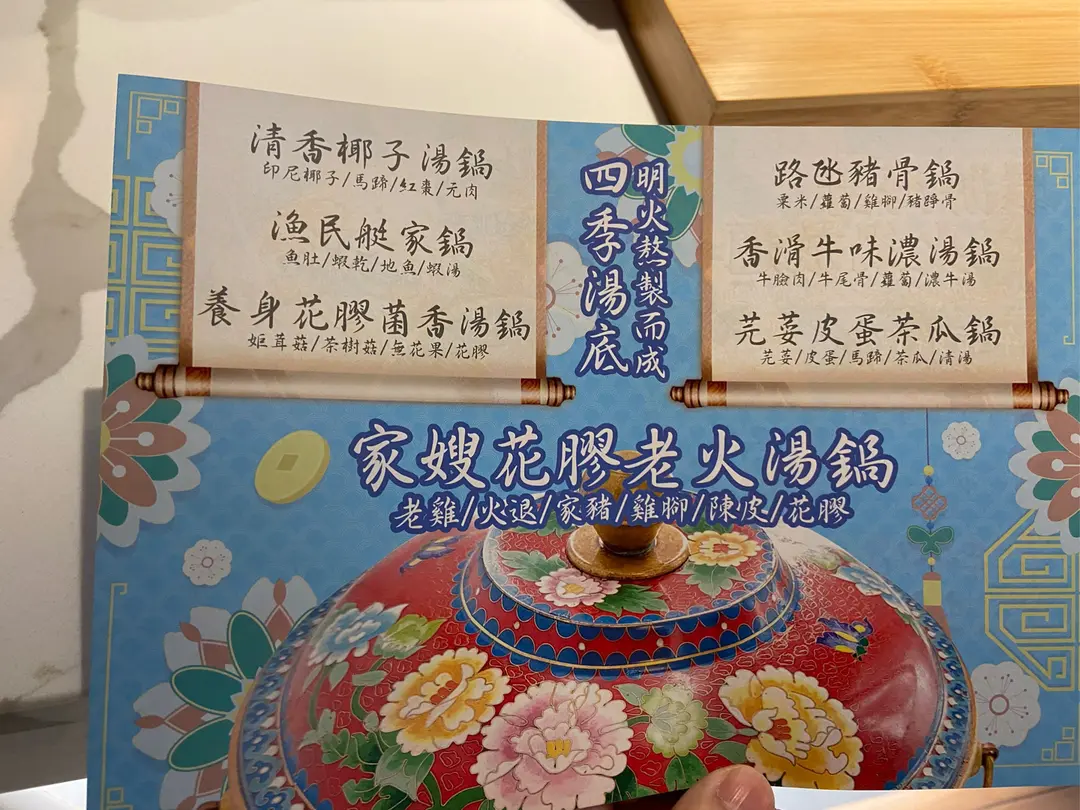 清香椰子湯鍋
印尼椰子/馬蹄/紅棗/元肉
漁民艇家鍋
魚肚/蝦乾/地魚/蝦湯
養身花膠菌香湯鍋
姬茸菇/茶樹菇/無花果/花膠
四季湯底
明火熬製而成
路氹豬骨鍋
粟米/蘿蔔/雞腳/豬踭骨
香滑牛味濃湯鍋
牛臉肉/牛尾骨/蘿蔔/濃牛湯
芫荽皮蛋茶瓜鍋
芫荽/皮蛋/馬蹄/茶瓜/清湯
家嫂花膠老火湯鍋
老雞/火退/家豬/雞腳/陳皮/花膠